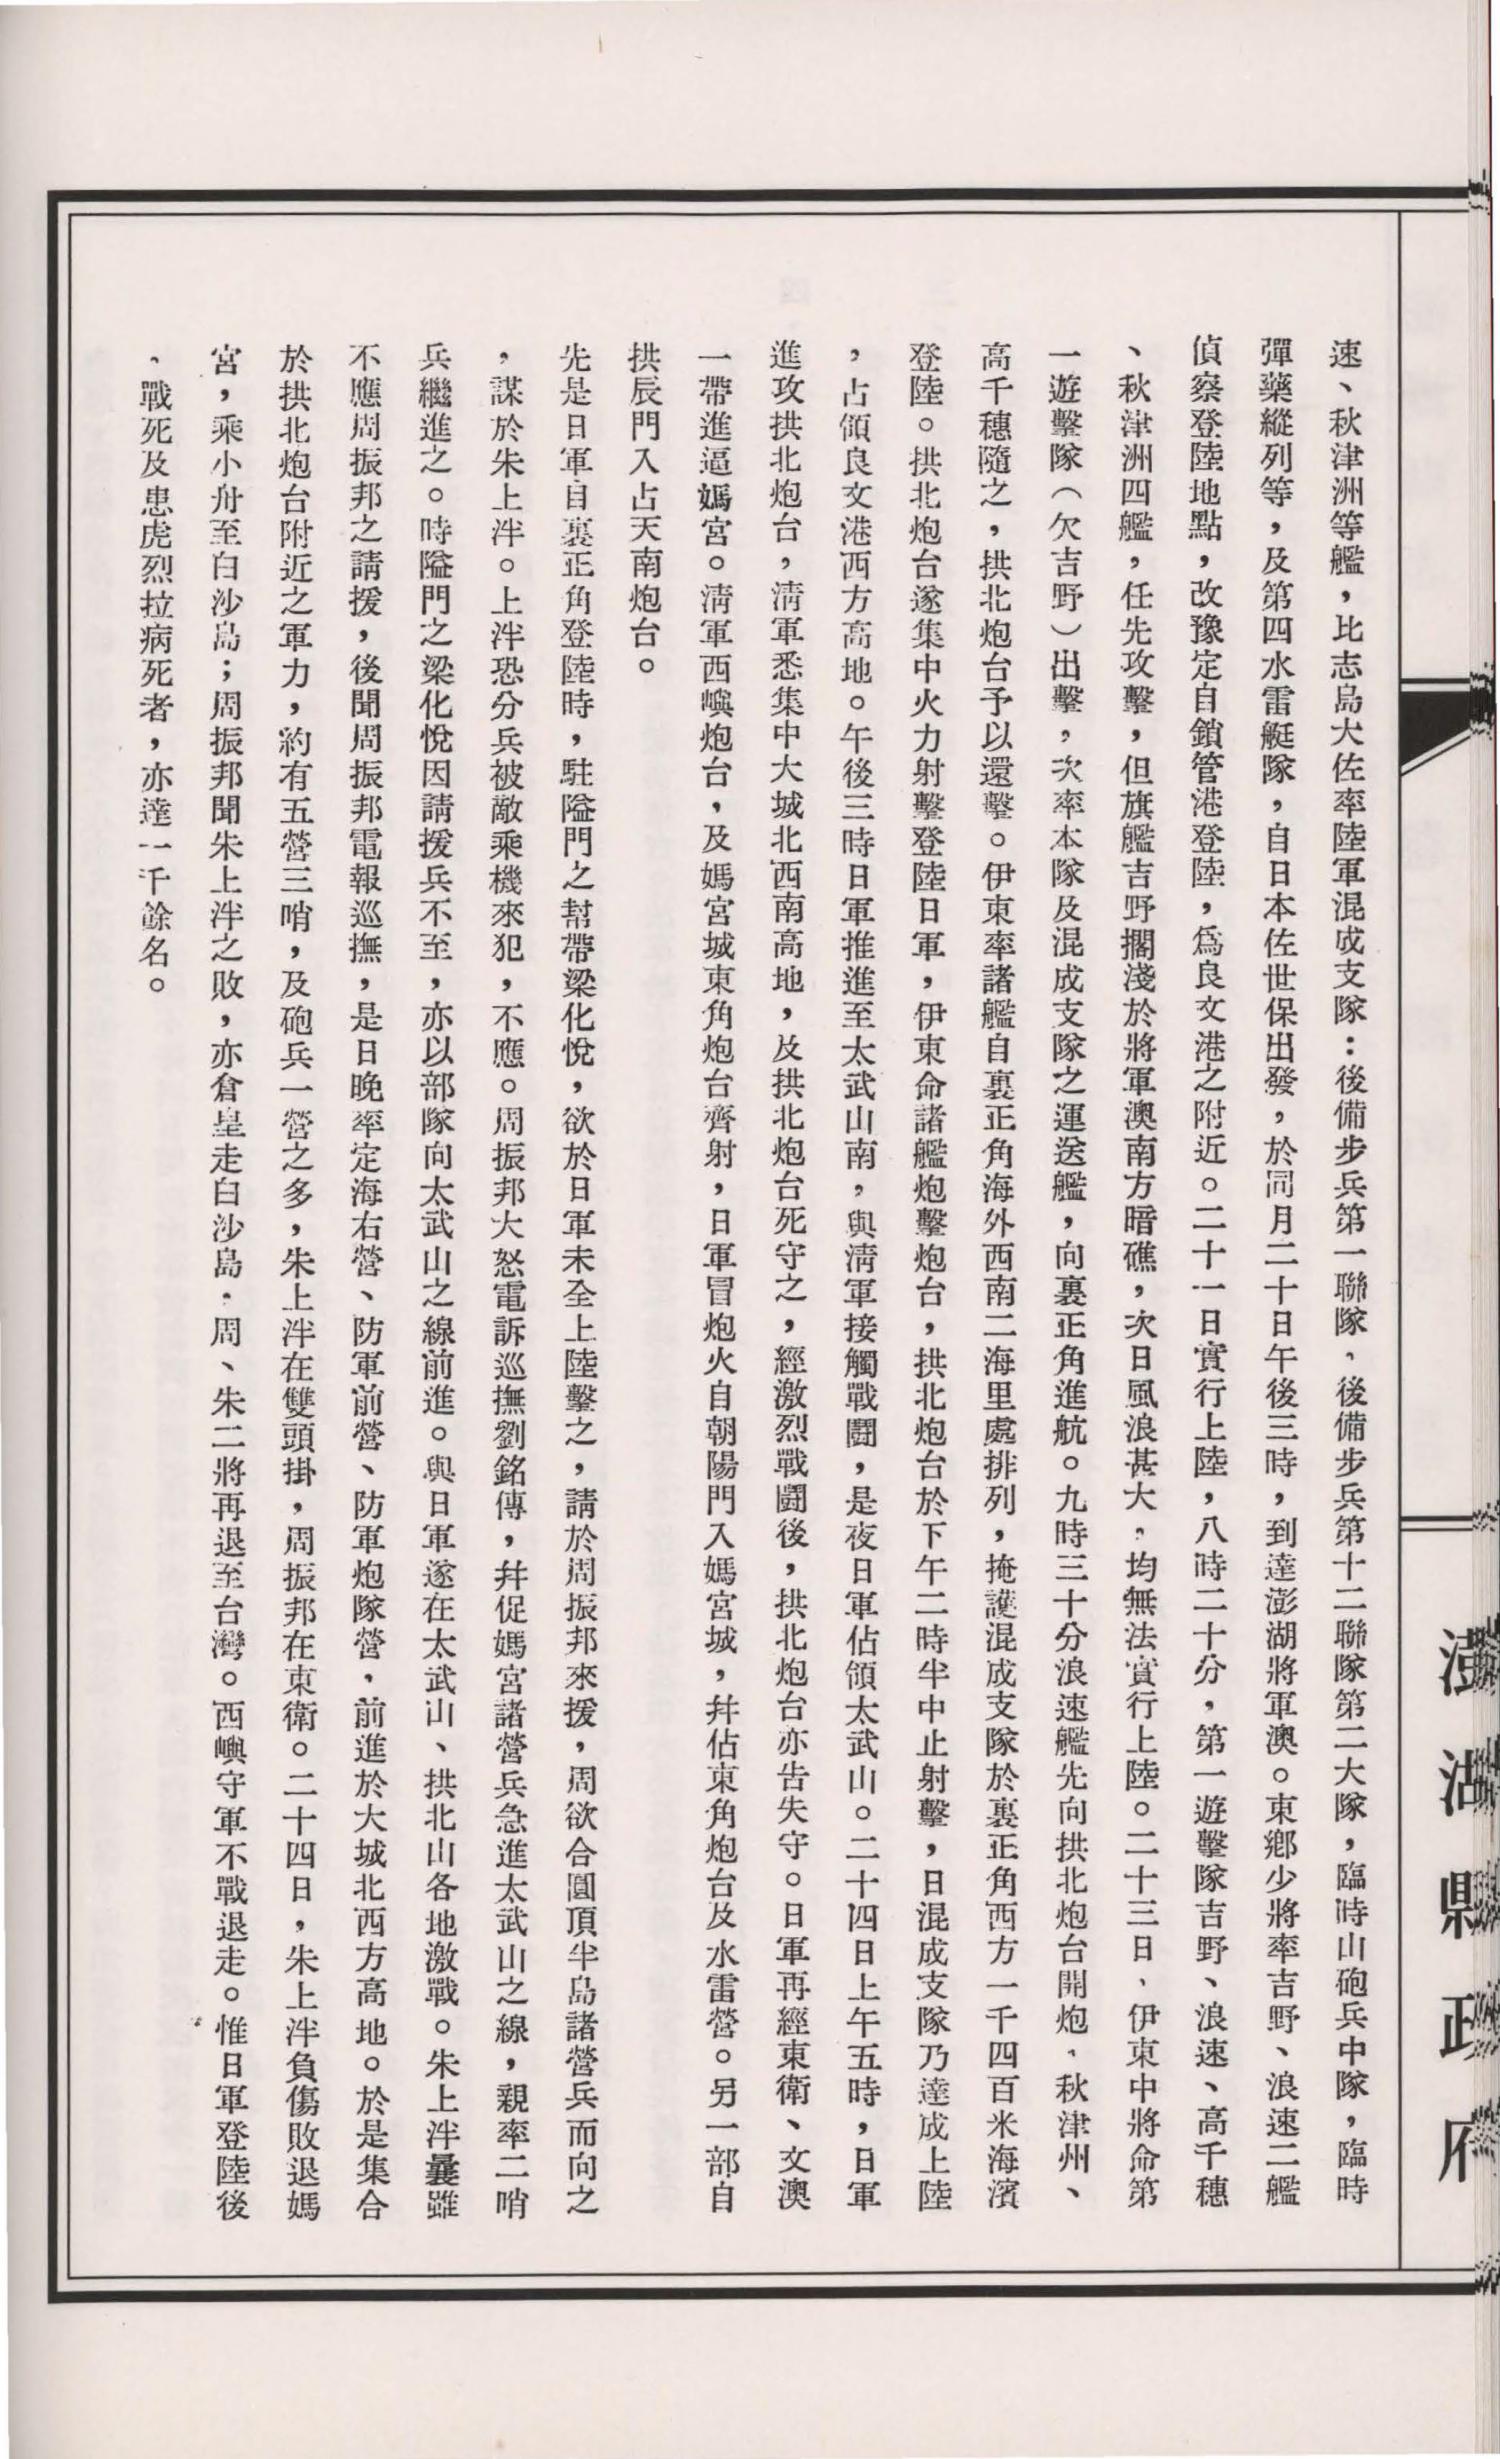 澎湖縣政府
速、秋津洲等艦，比志島大佐率陸軍混成支隊：後備步兵第一聯隊，後備步兵第十二聯隊第二大隊，臨時山砲兵中隊，臨時
彈藥縱列等，及第四水雷艇隊，自日本佐世保出發，於同月二十日午後三時，到達澎湖將軍澳。東鄉少將率吉野、浪速二艦
偵察登陸地點，改豫定自鎖管港登陸，爲良文港之附近。二十一日實行上陸，八時二十分，第一遊擊隊吉野、浪速、高千穗
、秋津洲四艦，任先攻擊，但旗艦吉野擱淺於將軍澳南方暗礁，次日風浪甚大，均無法實行上陸。二十三日，伊東中將命第
一遊擊隊（欠吉野）出擊，次率本隊及混成支隊之運送艦，向裏正角進航。九時三十分浪速艦先向拱北炮台開炮，秋津州、
高千穗隨之，拱北炮台予以還擊。伊東率諸艦自裏正角海外西南二海里處排列，掩護混成支隊於裏正角西方一千四百米海濱
登陸。拱北炮台遂集中火力射擊登陸日軍，伊東命諸艦炮擊炮台，拱北炮台於下午二時半中止射擊，日混成支隊乃達成上陸
，占領良文港西方高地。午後三時日軍推進至太武山南，與清軍接觸戰鬪，是夜日軍佔領太武山。二十四日上午五時，日軍
進攻拱北炮台，清軍悉集中大城北西南高地，及拱北炮台死守之，經激烈戰鬪後，拱北炮台亦告失守。日軍再經東衛、文澳
一帶進逼媽宮。清軍西嶼炮台，及媽宮城東角炮台齊射，日軍冒炮火自朝陽門入媽宮城，幷佔東角炮台及水雷營。另一部自
拱辰門入占天南炮台。
先是日軍自裏正角登陸時，駐隘門之幫帶梁化悅，欲於日軍未全上陸擊之，請於周振邦來援，周欲合圓頂半島諸營兵而向之
，謀於朱上泮。上泮恐分兵被敵乘機來犯，不應。周振邦大怒電訴巡撫劉銘傳，幷促媽宮諸營兵急進太武山之線，親率二哨
兵繼進之。時隘門之梁化悅因請援兵不至，亦以部隊向太武山之線前進。與日軍遂在太武山、拱北山各地激戰。朱上泮曩雖
不應周振邦之請援，後聞周振邦電報巡撫，是日晚率定海右營、防軍前營、防軍炮隊營，前進於大城北西方高地。於是集合
於拱北炮台附近之軍力，約有五營三哨，及砲兵一營之多，朱上泮在雙頭掛，周振邦在東衛。二十四日，朱上泮負傷敗退媽
宮，乘小舟至白沙島；周振邦聞朱上泮之敗，亦倉皇走白沙島，周、朱二將再退至台灣。西嶼守軍不戰退走。惟日軍登陸後
，戰死及患虎烈拉病死者，亦達一千餘名。